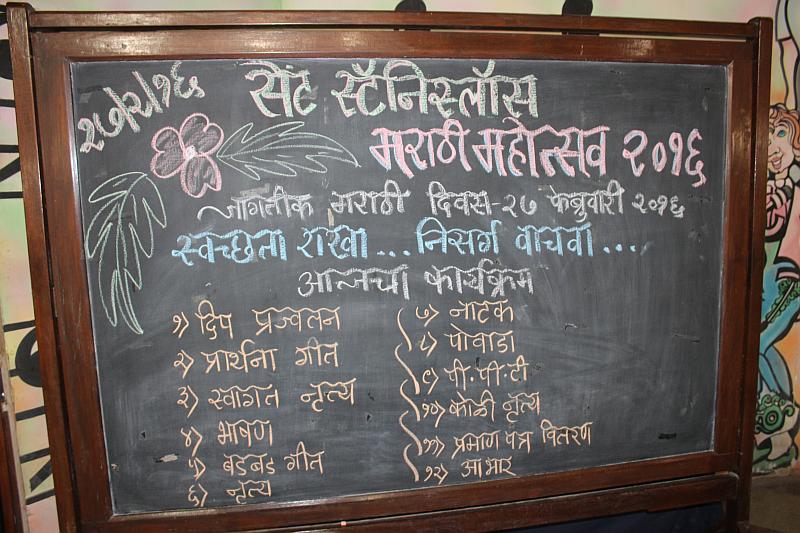 २७/२/१६
सेंट स्टॅनिस्लॉस
मराठी महोत्सव २०१६
जागतीक मराठी दिवस-२७ फेब्रुवारी २०१६
स्वच्छता राखा... निसर्ग वाचवा....
आजचा कार्यक्रम
१) दिप प्रज्वलन
२) प्रार्थना गीत
३) स्वागत नृत्य
४) भाषण
५) बडबड गीत
६) नृत्य
७) नाटक
८) पोवाडा
९) पी.पी.टी
१०) कोळी नृत्य
११) प्रमाण पत्र वितरण
१२) आभार